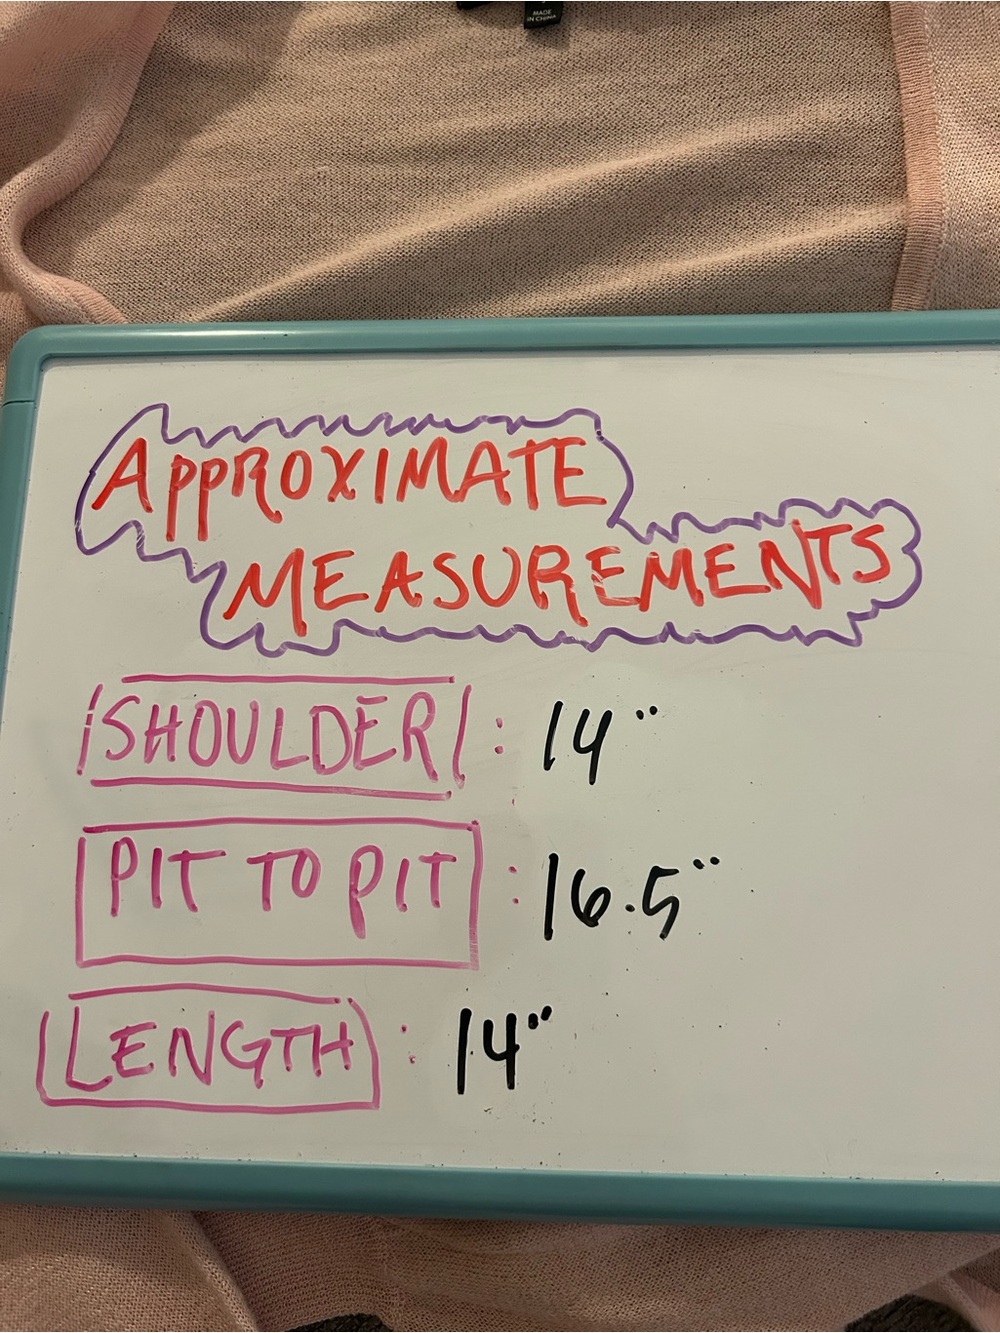 MADE
IN CHINA
APPROXIMATE
MEASUREMENTS
SHOULDER : 14"
PIT TO PIT : 16.5"
LENGTH : 14"